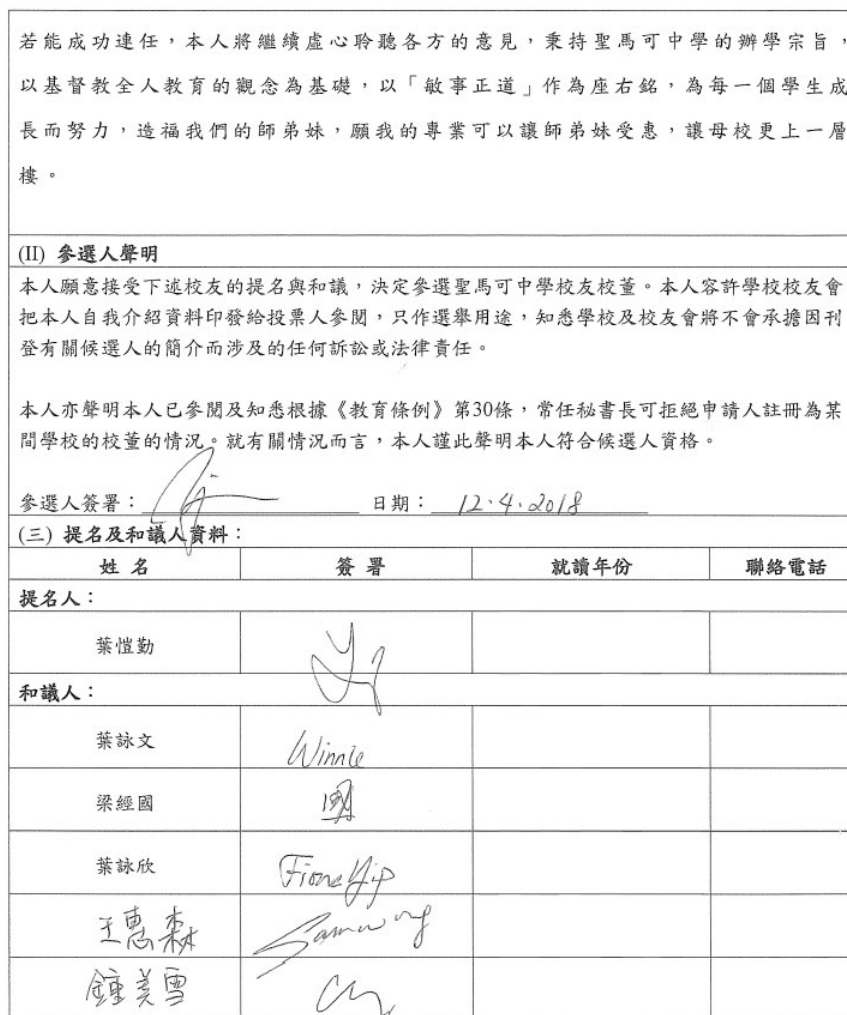 若能成功連任，本人將繼續虛心聆聽各方的意見，秉持聖馬可中學的辦學宗旨，
以基督教全人教育的觀念為基礎，以「敏事正道」作為座右銘，為每一個學生成
長而努力，造福我們的師弟妹，願我的專業可以讓師弟妹受惠，讓母校更上一層
樓。
(II) 參選人聲明
本人願意接受下述校友的提名與和議，決定參選聖馬可中學校友校董。本人容許學校校友會
把本人自我介紹資料印發給投票人參閱，只作選舉用途，知悉學校及校友會將不會承擔因刊
登有關候選人的簡介而涉及的任何訴訟或法律責任。
本人亦聲明本人已參閱及知悉根據《教育條例》第30條，常任秘書長可拒絕申請人註冊為某
間學校的校董的情況。就有關情況而言，本人謹此聲明本人符合候選人資格。
參選人簽署： 日期：12.4.2018
(三) 提名及和議人資料：
姓 名 簽 署 就讀年份 聯絡電話
提名人：
葉愷勤
和議人：
葉詠文 Winnie
梁經國 國
葉詠欣 Fiona Yip
王惠森
鍾美雪